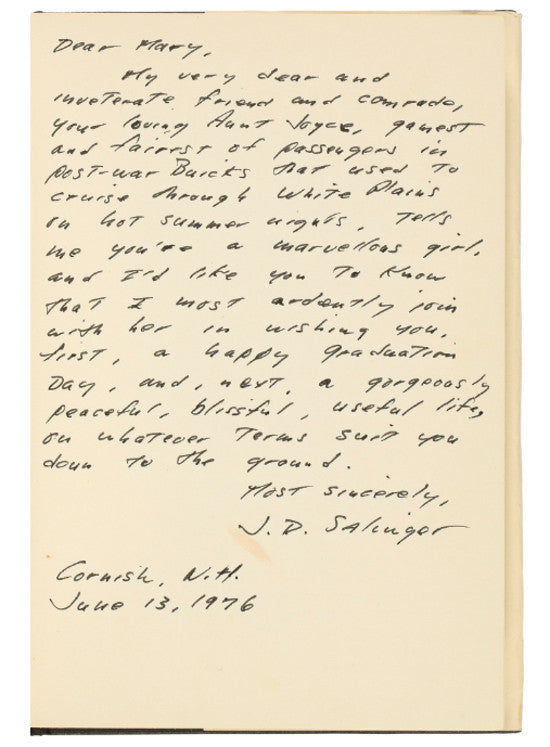 Dear Mary,
My very dear and
inveterate friend and comrade,
your loving Aunt Joyce, gamest
and fairest of passengers in
post-war Buicks that used to
cruise through White Plains
on hot summer nights, tells
me you're a marvellous girl,
and I'd like you to know
that I most ardently join
with her in wishing you,
first, a happy graduation
Day, and, next, a gorgeously
peaceful, blissful, useful life,
on whatever terms suit you
down to the ground.
Most sincerely,
J. D. Salinger
Cornish, N.H.
June 13, 1976